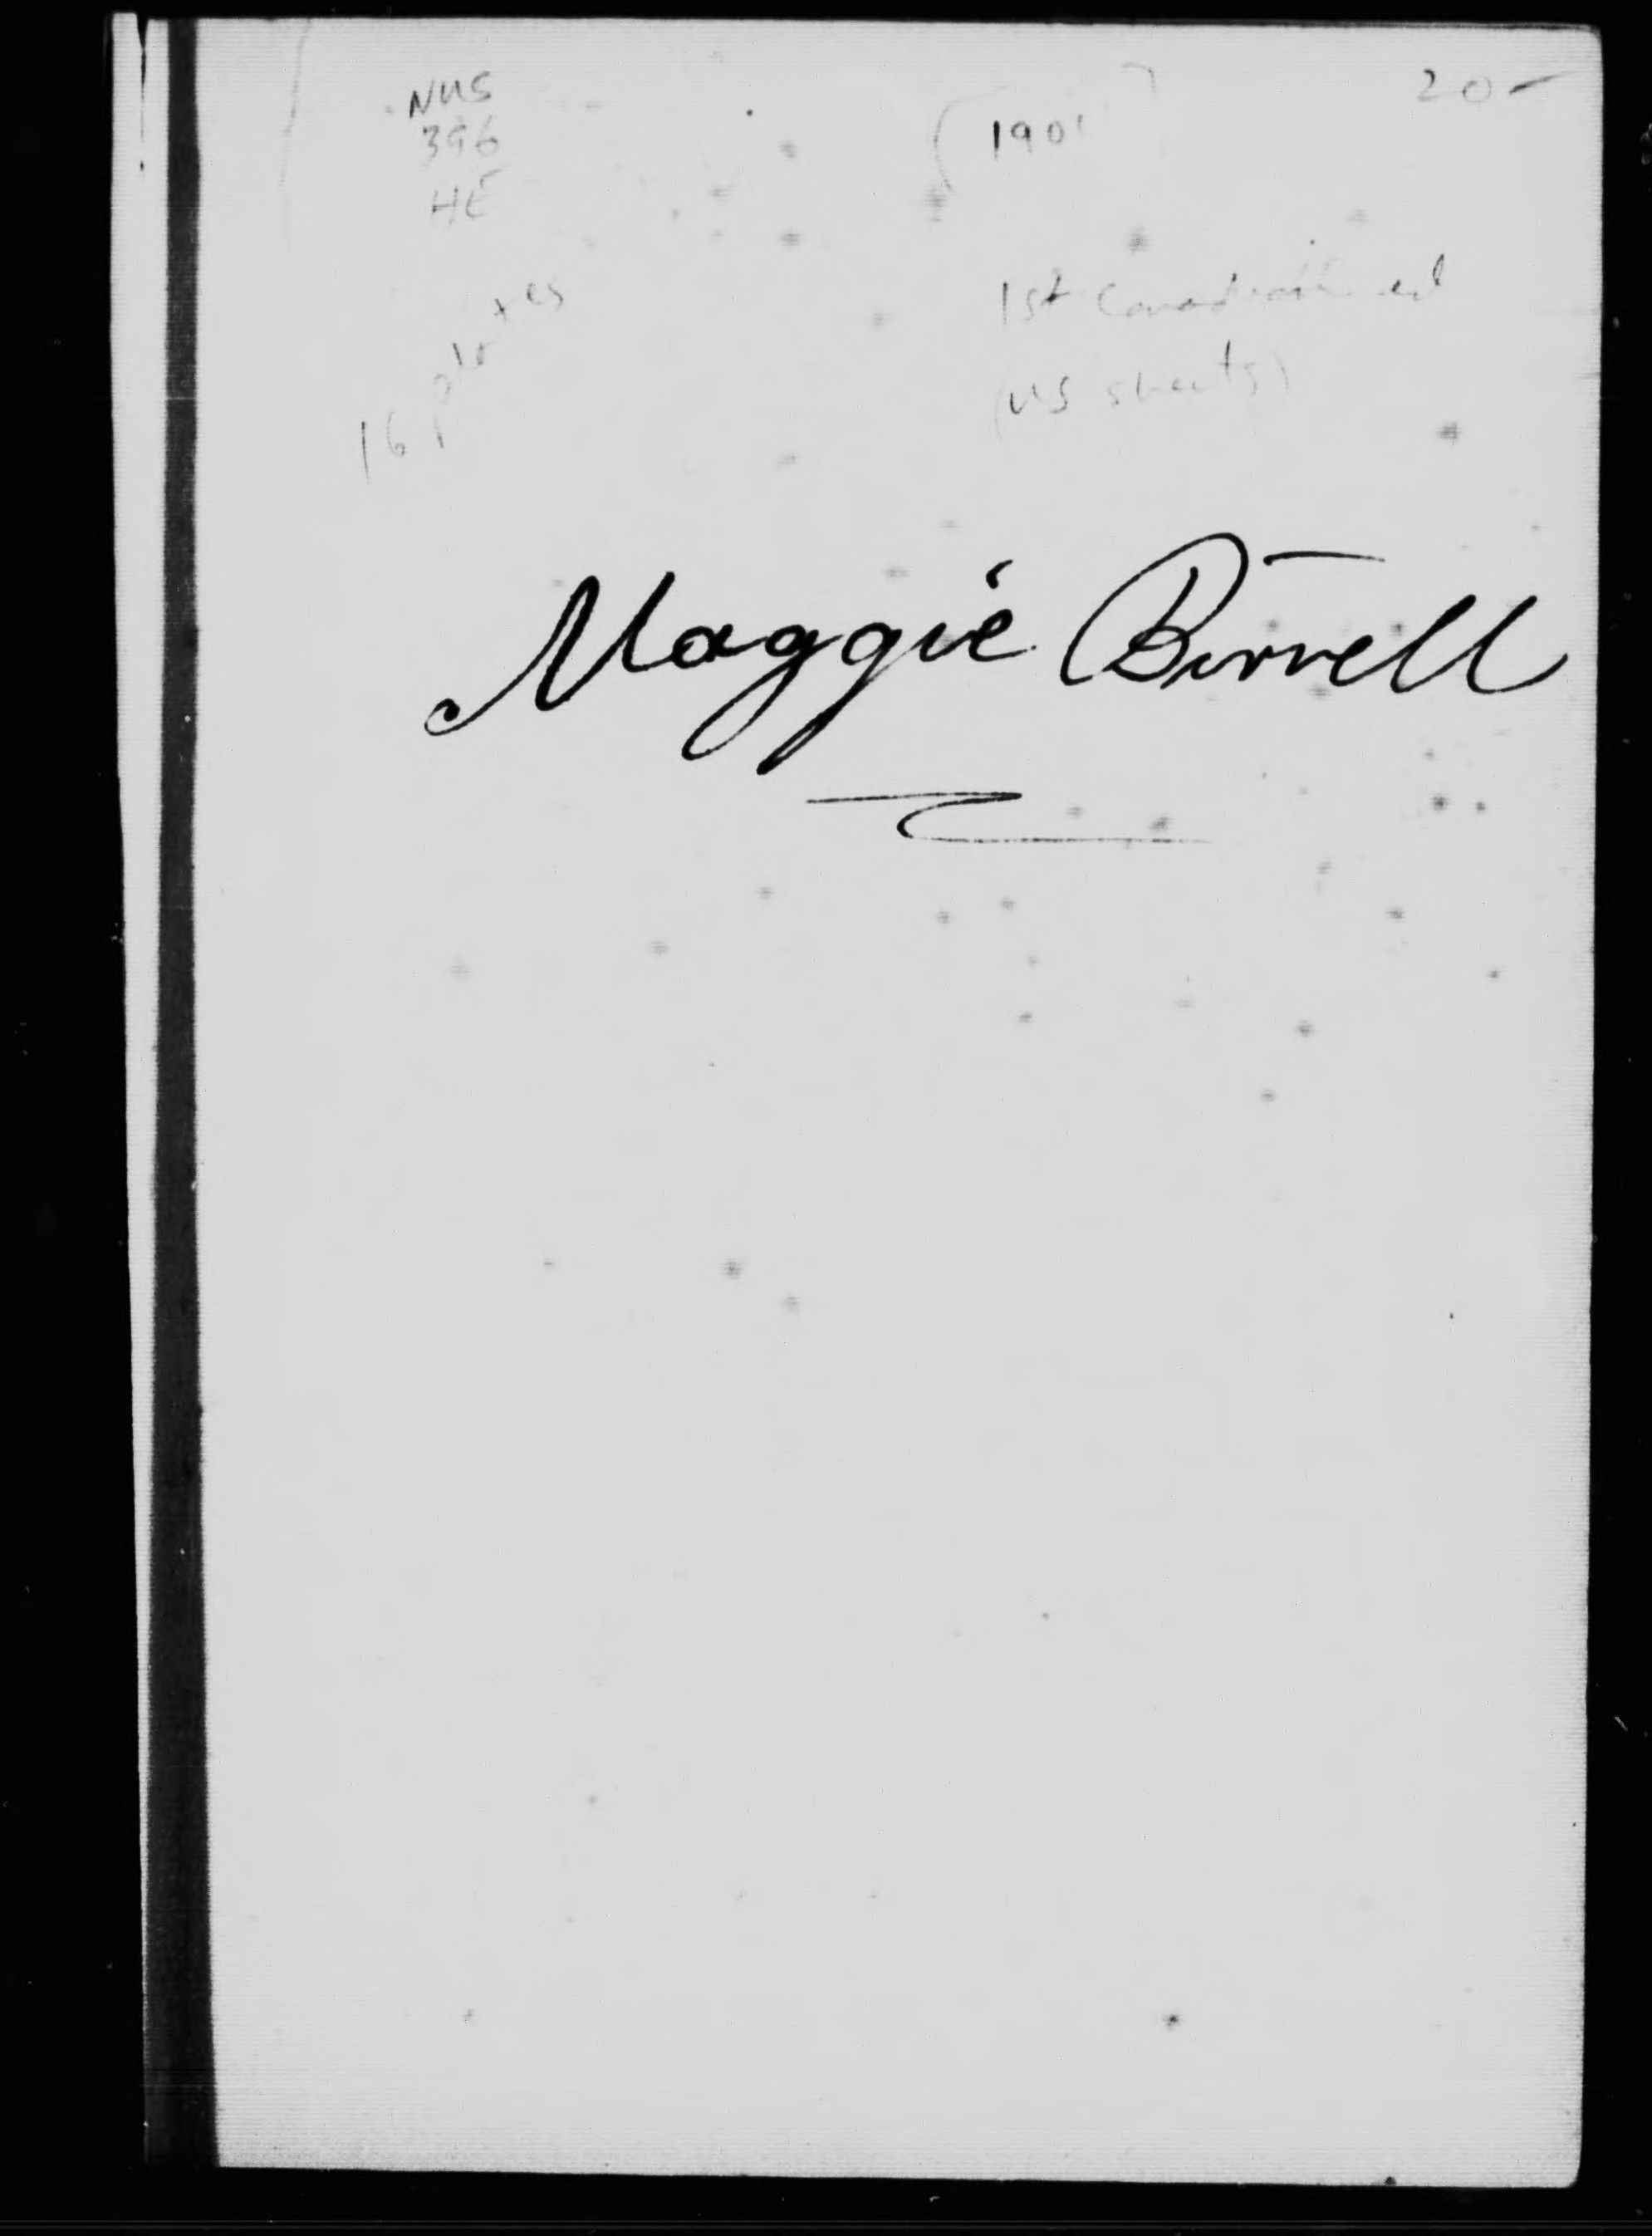 NUS
396
HE
[1901]
20-
16 plates
1st Canadian ed
(US sheets)
Maggie Birrell